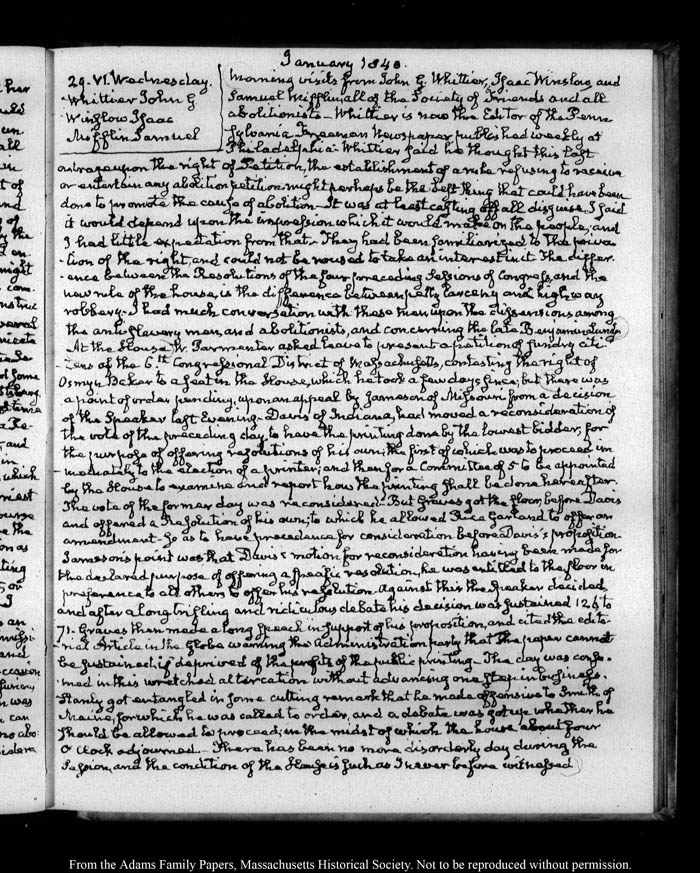 January 1840.
29. VI. Wednesday.
Whittier John G
Winslow Isaac
Mifflin Samuel
Morning visits from John G. Whittier, Isaac Winslow and
Samuel Mifflin, all of the Society of Friends and all
abolitionists— Whittier is now the Editor of the Penn-
sylvania Freeman Newspaper published weekly at
Philadelphia— Whittier said he thought this last
outrage upon the right of Petition, the establishment of a rule refusing to receive
or entertain any abolition petition might perhaps be the best thing that could have been
done to promote the cause of abolition— It was at least casting off all disguise. I said
it would depend upon the impression which it would make on the people; and
I had little expectation from that— They had been familiarized to the priva-
-tion of the right, and could not be roused to take an interest in it. The differ-
-ence between the Resolutions of the four preceding Sessions of Congress, and the
new rule of the house, is the difference between petty larceny and high-way
robbery— I had much conversation with these men upon the dissensions among
the anti-slavery men, and abolitionists, and concerning the late Benjamin Lundy.
At the House, W. Parmenter asked leave to present a petition of sundry citi-
-zens of the 6th Congressional District of Massachusetts, contesting the right of
Osmyn Baker to a seat in the House, which he took a few days since, but there was
a point of order pending, upon an appeal by Jameson of Missouri from a decision
of the Speaker last Evening— Davis of Indiana, had moved a reconsideration of
the vote of the preceding day, to have the printing done by the lowest bidder, for
the purpose of offering resolutions of his own; the first of which was to proceed im-
-mediately to the election of a printer; and then for a Committee of 5 to be appointed
by the House to examine and report how the printing shall be done hereafter.
The vote of the former day was reconsidered— But Graves got the floor, before Davis
and offered a Resolution of his own; to which he allowed Rice Garland to offer an
amendment— So as to have precedence for consideration before Davis's proposition
Jameson's point was that Davis's motion for reconsideration having been made for
the declared purpose of offering a specific resolution, he was entitled to the floor in
preference to all others to offer his resolution. Against this the Speaker decided,
and after a long trifling and ridiculous debate his decision was sustained 126 to
71. Graves then made a long Speech in support of his proposition, and cited the edito-
-rial Article in the Globe warning the Administration party that the paper cannot
be sustained, if deprived of the profits of the public printing— The day was consu-
-med in this wretched altercation without advancing one step in business.
Stanly got entangled in some cutting remark that he made offensive to Smith of
Maine, for which he was called to order, and a debate was got up whether he
should be allowed to proceed; in the midst of which the house about four
O'Clock adjourned— There has been no more disorderly day during the
Session, and the condition of the House is such as I never before witnessed
From the Adams Family Papers, Massachusetts Historical Society. Not to be reproduced without permission.